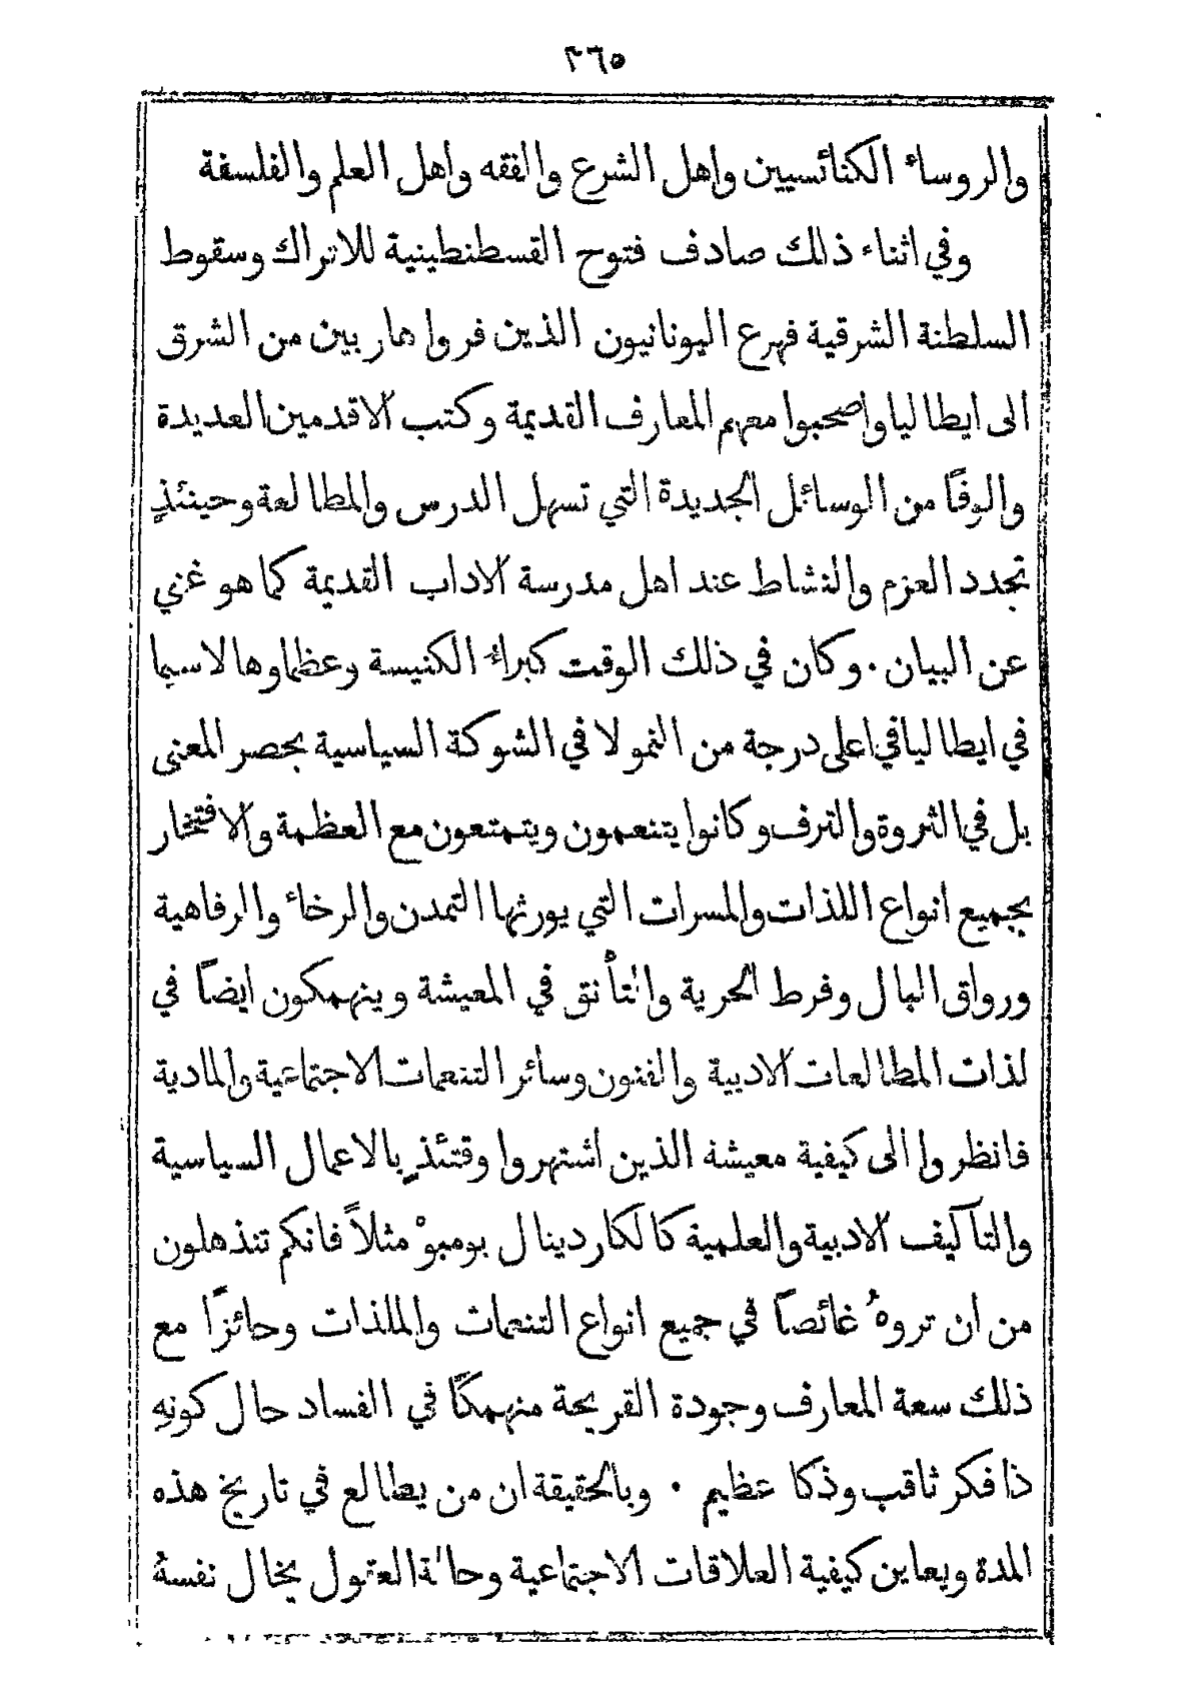 ٣٦٥
والروساء الكنائسيين واهل الشرع والفقه واهل العلم والفلسفة
وفي اثناء ذلك صادف فتوح القسطنطينية للاتراك وسقوط
السلطنة الشرقية فهرع اليونانيون الذين فروا هاربين من الشرق
الى ايطاليا واصحبوا معهم المعارف القديمة وكتب الاقدمين العديدة
والوفًا من الوسائل الجديدة التي تسهل الدرس والمطالعة وحينئذٍ
تجدد العزم والنشاط عند اهل مدرسة الاداب القديمة كما هو غني
عن البيان . وكان في ذلك الوقت كبراء الكنيسة وعظماوها لاسيما
في ايطاليا في اعلى درجة من النمو لا في الشوكة السياسية بحصر المعنى
بل في الثروة والترف وكانوا يتنعمون ويتمتعون مع العظمة والافتخار
بجميع انواع اللذات والمسرات التي يورثها التمدن والرخاء والرفاهية
ورواق البال وفرط الحرية والتأنق في المعيشة وينهمكون ايضًا في
لذات المطالعات الادبية والفنون وسائر التنعمات الاجتماعية والمادية
فانظروا الى كيفية معيشة الذين اشتهروا وقتئذٍ بالاعمال السياسية
والتآليف الادبية والعلمية كالكاردينال بومبوْ مثلاً فانكم تنذهلون
من ان تروهُ غائصًا في جميع انواع التنعمات والملذات وحائزًا مع
ذلك سعة المعارف وجودة القريحة منهمكًا في الفساد حال كونهِ
ذا فكر ثاقب وذكا عظيم . وبالحقيقة ان من يطالع في تاريخ هذه
المدة ويعاين كيفية العلاقات الاجتماعية وحالة العقول يخال نفسهُ